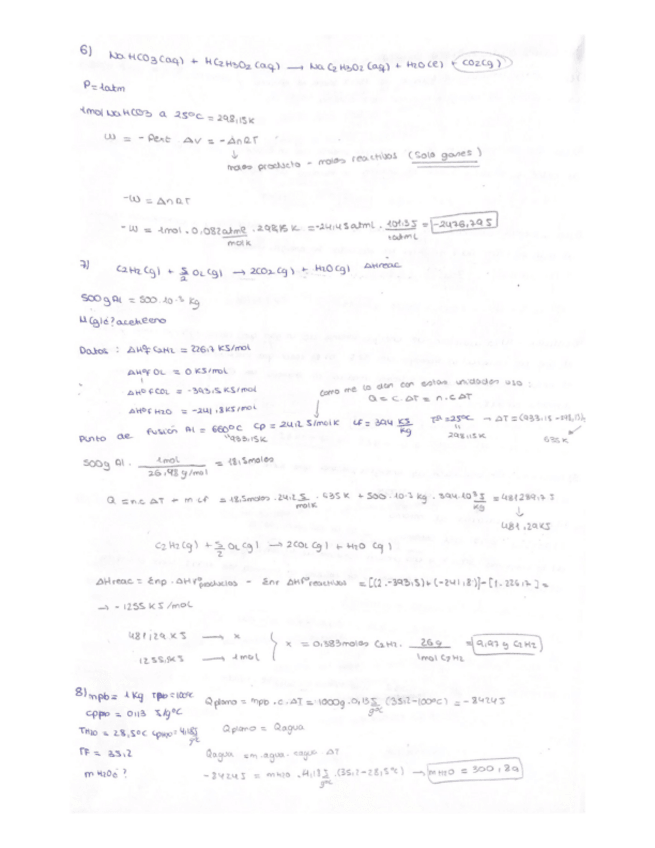 6) NaHCO3(aq) + HC2H3O2(aq) → NaC2H3O2(aq) + H2O(l) + CO2(g)
P = 1atm
1mol NaHCO3 a 25ºC = 298,15K
W = - Pext ΔV = -ΔnRT
↓
moles producto - moles reactivos (solo gases)
-W = ΔnRT
-W = 1mol · 0,082 atmL/molK · 298,15K = -24,45atmL · 101,3J/1atmL = -2476,79J
7) C2H2(g) + 5/2 O2(g) → 2CO2(g) + H2O(g) ΔHreac
500g Al = 500·10⁻³ kg
M(g)¿? acetileno
Datos: ΔHºf C2H2 = 226,7 KJ/mol
ΔHºf O2 = 0 KJ/mol
ΔHºf CO2 = -393,5 KJ/mol
ΔHºf H2O = -241,8 KJ/mol
como me lo dan con estas unidades uso:
Q = C·ΔT = n·c·ΔT
Punto de fusión Al = 660ºC Cp = 24,2 J/molK Lf = 394 KJ/Kg Tº = 25ºC → ΔT = (933,15 - 298,15)
933,15K 298,15K 635K
500g Al · 1mol / 26,98 g/mol = 18,5moles
Q = n·c·ΔT + m·Lf = 18,5moles · 24,2 J/molK · 635K + 500·10⁻³ kg · 394·10³ J/kg = 481289,7J
↓
481,29KJ
C2H2(g) + 5/2 O2(g) → 2CO2(g) + H2O(g)
ΔHreac = Σnp · ΔHfº productos - Σnr ΔHfº reactivos = [(2·-393,5)+(-241,8)]-[1·226,7] =
→ -1255 KJ/mol
481,29 KJ → x
1255,5KJ → 1mol
x = 0,383moles C2H2 · 26g / 1mol C2H2 = 9,97g C2H2
8) mpb = 1Kg Tpb = 100ºC
cpb = 0,13 J/gºC
TH2O = 28,5ºC
TF = 35,2
mH2O¿?
Qplomo = mpb · c · ΔT = 1000g · 0,13 J/gºC (35,2-100ºC) = -8424J
Qplomo = Qagua
Qagua = m agua · cagua · ΔT
-8424J = mH2O · 4,18 J/gºC · (35,2-28,5ºC) → mH2O = 300,8g